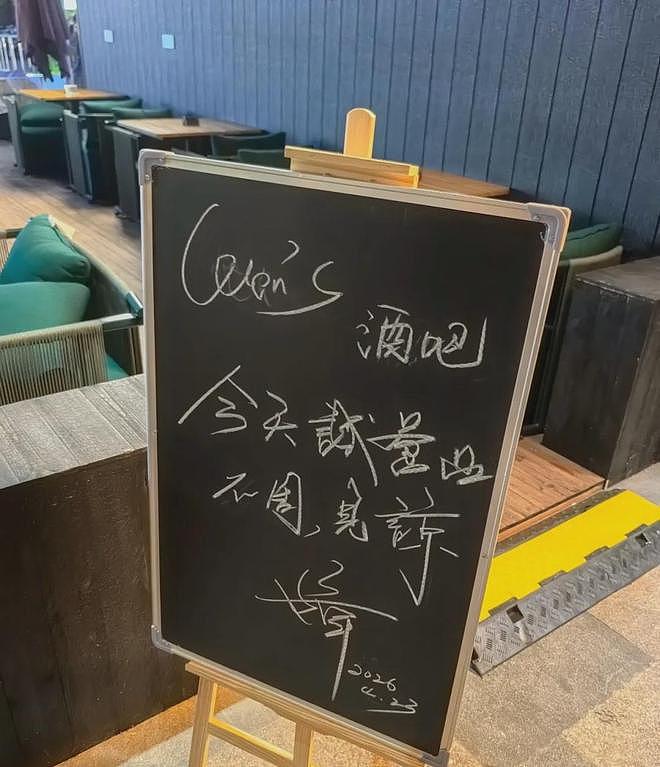 酒吧
今天試营业
不周,見諒
2026
4.23